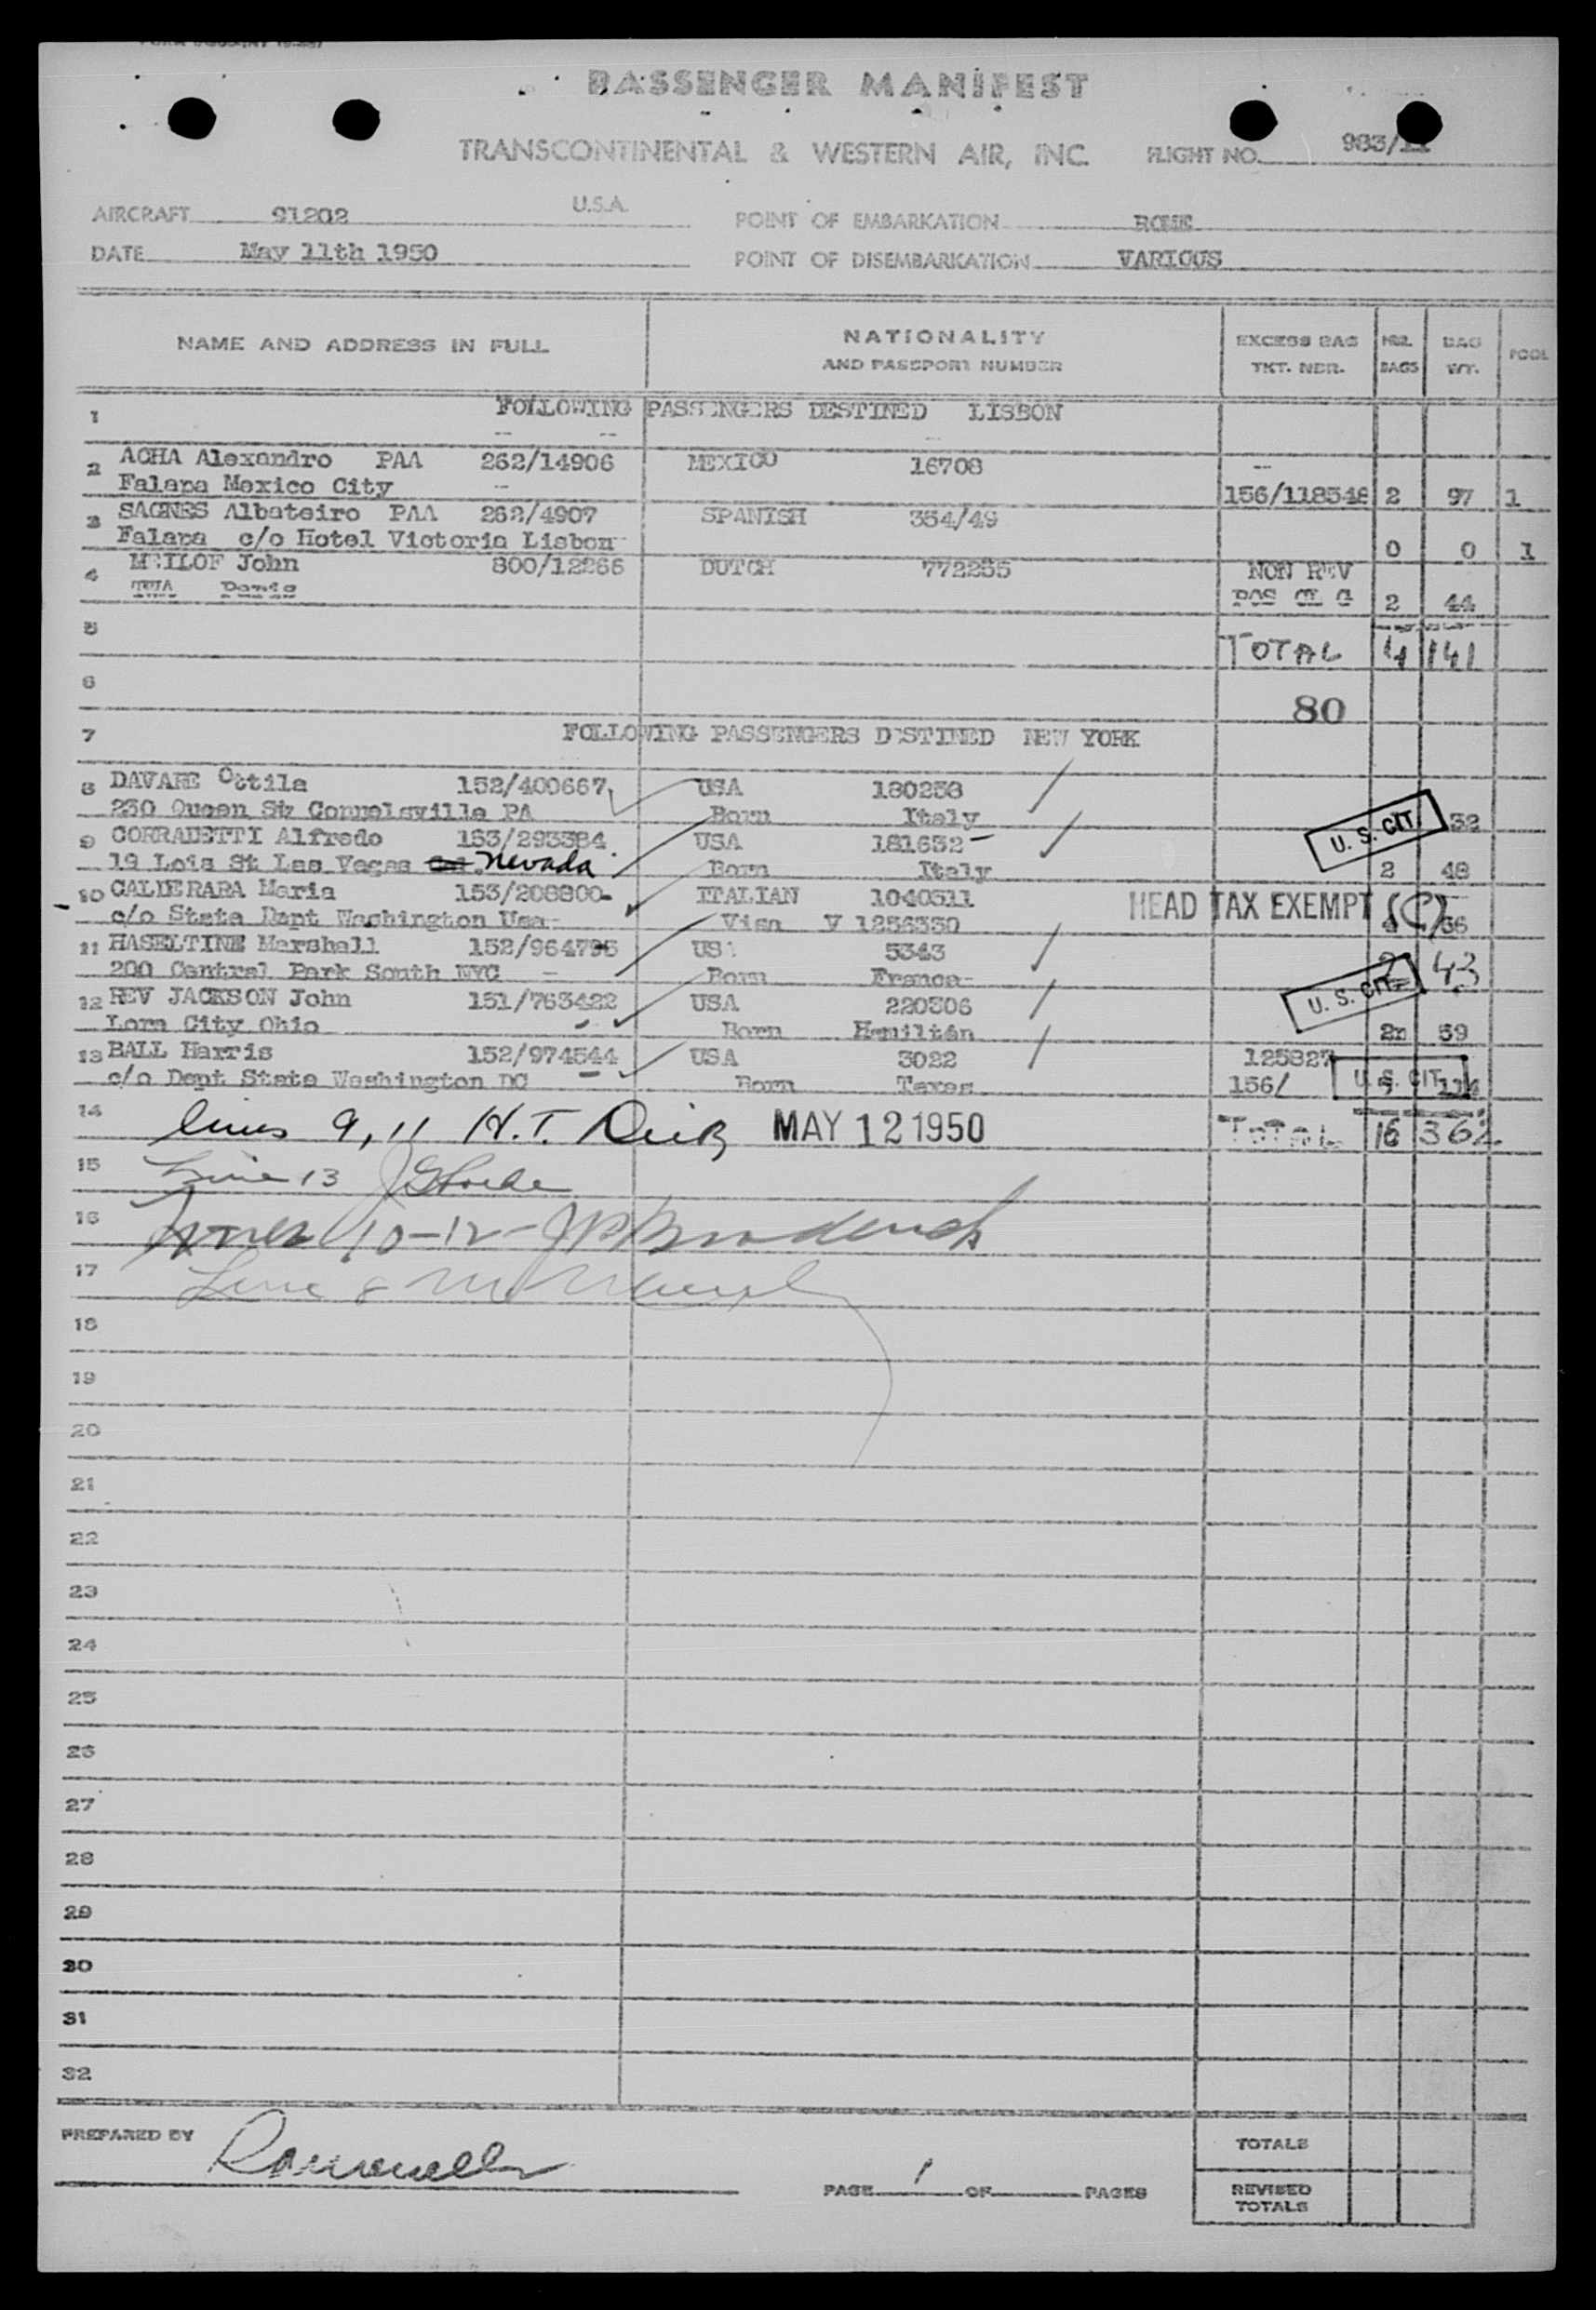 PASSENGER MANIFEST
TRANSCONTINENTAL & WESTERN AIR, INC. FLIGHT NO. 983/11
AIRCRAFT 91202 U.S.A. POINT OF EMBARKATION ROME
DATE May 11th 1950 POINT OF DISEMBARKATION VARIOUS
NAME AND ADDRESS IN FULL NATIONALITY AND PASSPORT NUMBER EXCESS BAG TKT. NBR. NBR. BAGS BAG WT. POOL
1 FOLLOWING PASSENGERS DESTINED LISBON
2 ACHA Alexandro PAA 262/14906 MEXICO 16708
Falapa Mexico City 156/118548 2 97 1
3 SAGNES Albateiro PAA 262/4907 SPANISH 354/49
Falapa c/o Hotel Victoria Lisbon 0 0 1
4 MEILOF John 800/12266 DUTCH 772255 NON REV
TWA Paris POS CL G 2 44
5 TOTAL 4 141
6 80
7 FOLLOWING PASSENGERS DESTINED NEW YORK
8 DAVARE Ottila 152/400667 USA 180238
230 Queen St Connelsville PA Born Italy U. S. CIT. 32
9 CORRADETTI Alfredo 153/293384 USA 181632
19 Lois St Las Vegas Nevada Born Italy 2 48
10 CALDERARA Maria 153/208800 ITALIAN 1040511 HEAD TAX EXEMPT (C)
c/o State Dept Washington Usa Visa V 1256330 36
11 HASELTINE Marshall 152/964795 USA 5343
200 Central Park South NYC Born France 43
12 REV JACKSON John 151/763422 USA 220306 U. S. CIT.
Lorn City Ohio Born Hamilton 2 59
13 BALL Harris 152/974544 USA 3022 125827
c/o Dept State Washington DC Born Texas 156/ U. S. CIT. 114
14 lines 9, 11 H.T. MAY 12 1950 TOTAL 16 362
15 Line 13
16 Lines 10-12-
17 Line 8
18
19
20
21
22
23
24
25
26
27
28
29
30
31
32
PREPARED BY TOTALS
PAGE 1 OF PAGES REVISED TOTALS